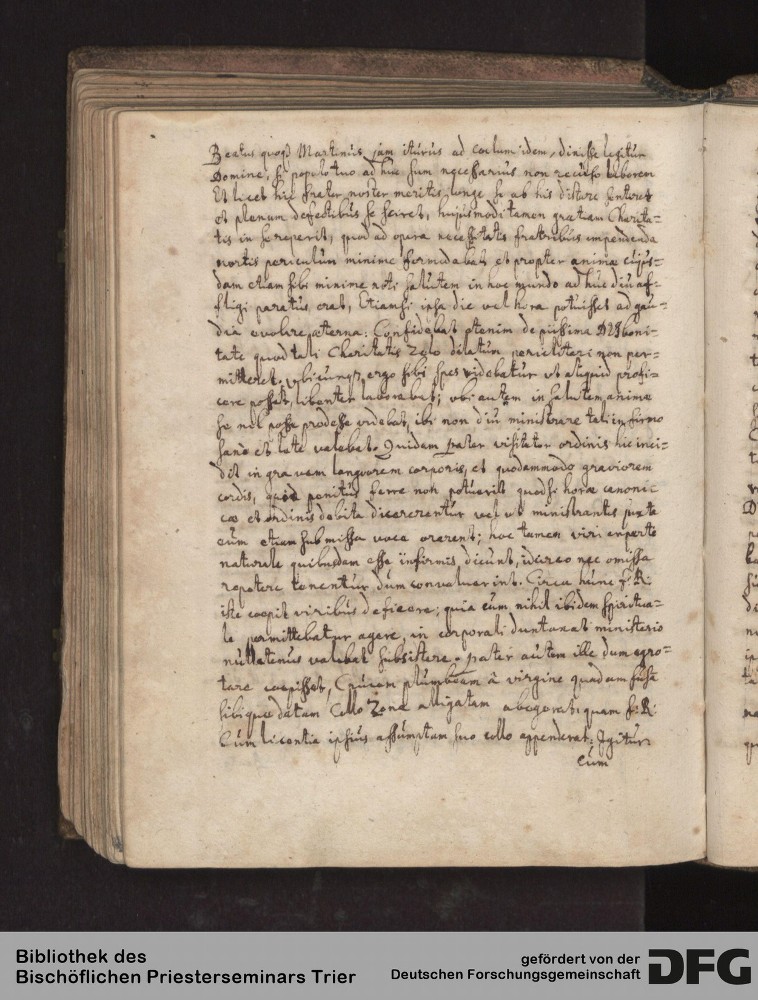 Beatus quoqз Martinus jam iturus ad coelum idem, dixisse legitur
Domine, si populo tuo ad huc sum necessarius non recuso laborem
Et licet hic frater noster meritis longe se ab his distare sentiret
et plenum defectibus se sciret, hujusmodi tamen gratiam Charita=
tis in se reperit, quod ad opera necessitatis frattribus impendenda
mortis periculum minime formidabat, et propter animae cujus=
dam etiam sibi minime noti salutem in hoc mundo ad huc diu af=
fligi paratus erat, Etiamsi ipsa die vel hora potuisset ad gau=
dia evolare aeterna: Confidebat etenim de piissima DEI boni=
tate quod tali Charitatis Zelo dilatum periclitari non per=
mitteret; ubicunqз ergo sibi spes videbatur ut aliquid profi=
cere posset, libenter laborabat; ubi autem in salutem animae
se nil posse prodesse videbat, ibi non diu ministrare tali infirmo
sane et late valebat. Quidam pater visitator ordinis hic inci=
dit in gravem languorem corporis, et quodammodo graviorem
cordis, quod penitus ferre non potuerit quod si horae canoni=
cae et ordinis debita dicerentur vel ut ministrantes juxta
eum etiam submissa voce orarent; hoc tamen viri experti
naturale quibusdam esse infirmis dicunt, idcirco nec omissa
repetere tenentur, dum convaluerint. Circa hunc f: R:
iste coepit viribus deficere; quia cum nihil ibidem spiritua=
le permittebatur agere, in corporali duntaxat ministerio
nullatenus valebat subsistere. pater autem ille dum egro=
tare coepisset, Crucem plumbeam â virgine quadam fusa
sibique datam Collo Zona alligatam abegerat; quam f: R:
Cum licentia ipsius assumptam suo collo appenderat; Igitur
cum
Bibliothek des
Bischöflichen Priesterseminars Trier
gefördert von der
Deutschen Forschungsgemeinschaft
DFG